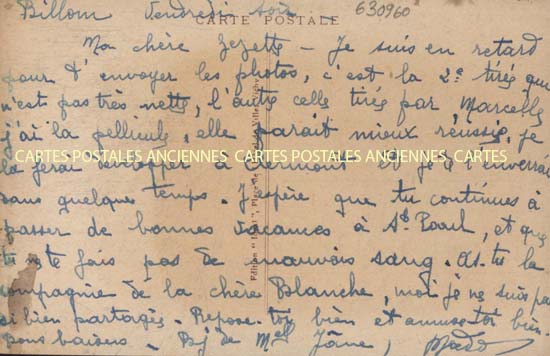 Billom Vendredi soir
CARTE POSTALE
630960
Ma chère Zezette - Je suis en retard
pour t'envoyer les photos, c'est la 2e tirée qui
n'est pas très nette, l'autre celle tirée par Marcelle
j'ai la pellicule, elle parait mieux réussie, je
CARTES POSTALES ANCIENNES CARTES POSTALES ANCIENNES CARTES
la ferai développer à Clermont et je te l'enverrai
dans quelques temps. J'espère que tu continues à
passer de bonnes vacances à St Paul, et que
tu ne te fais pas de mauvais sang. As-tu la
compagnie de la chère Blanche, moi je ne suis pas
si bien partagée. Repose-toi bien et amuse toi bien
bons baisers. Bj de Mell Jane, Mado